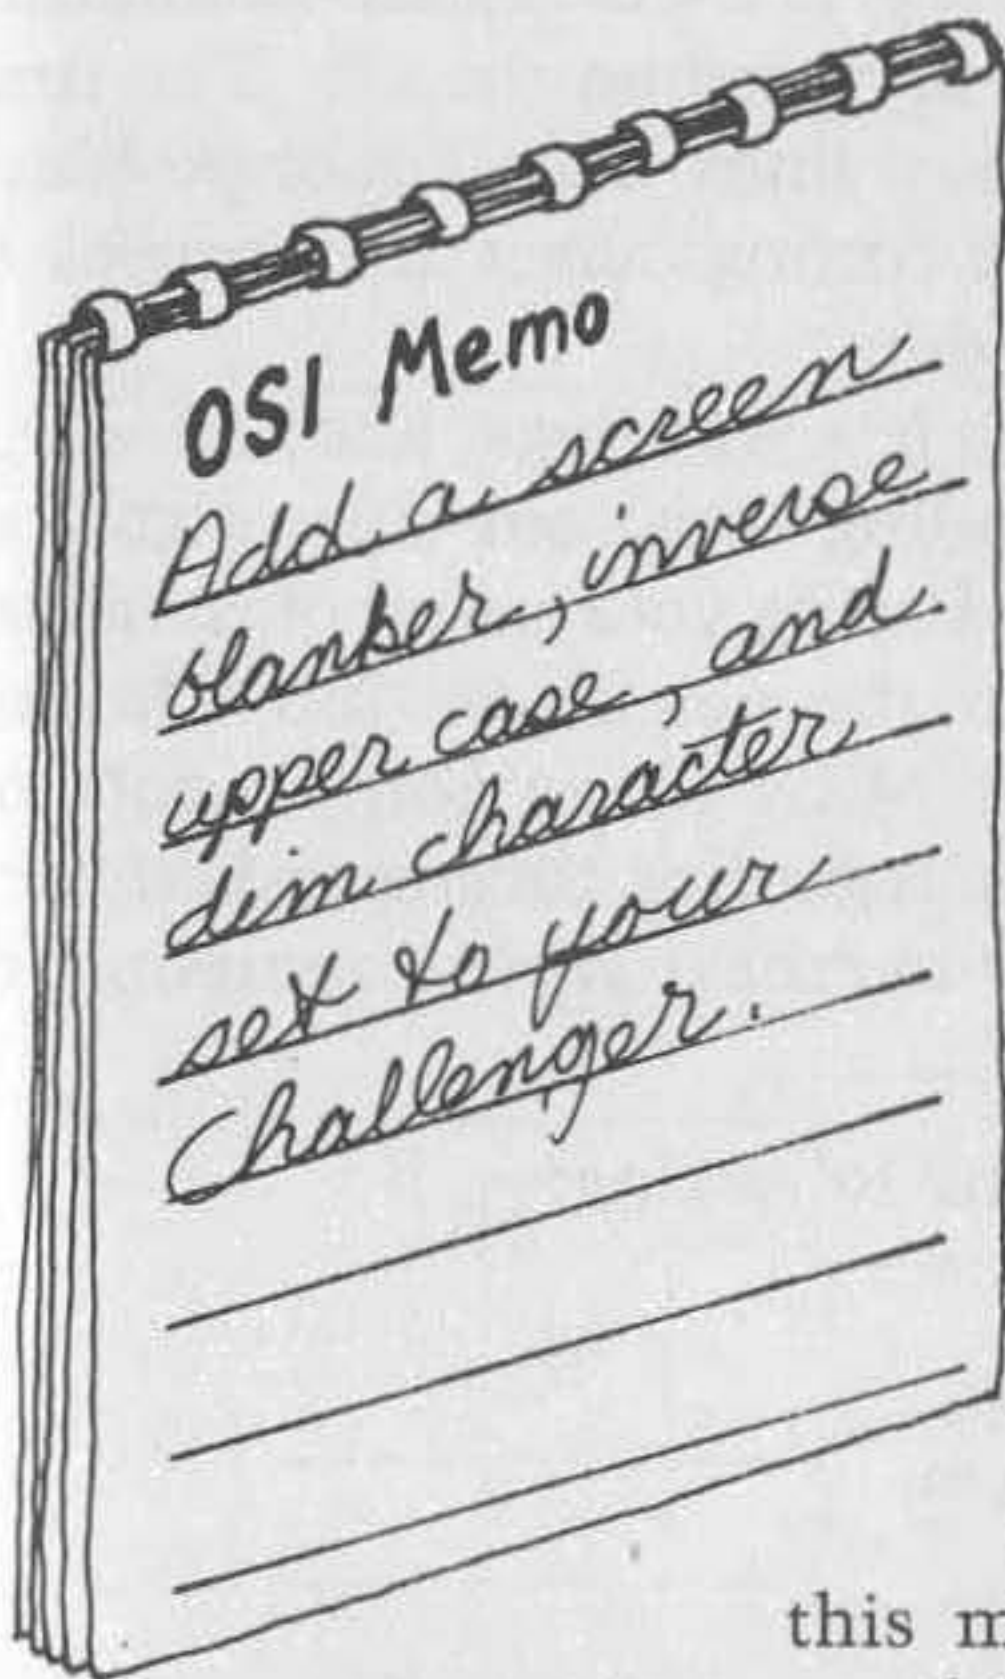 OSI Memo
Add a screen
blanker, inverse
upper case, and
dim character
set to your
Challenger.
this m